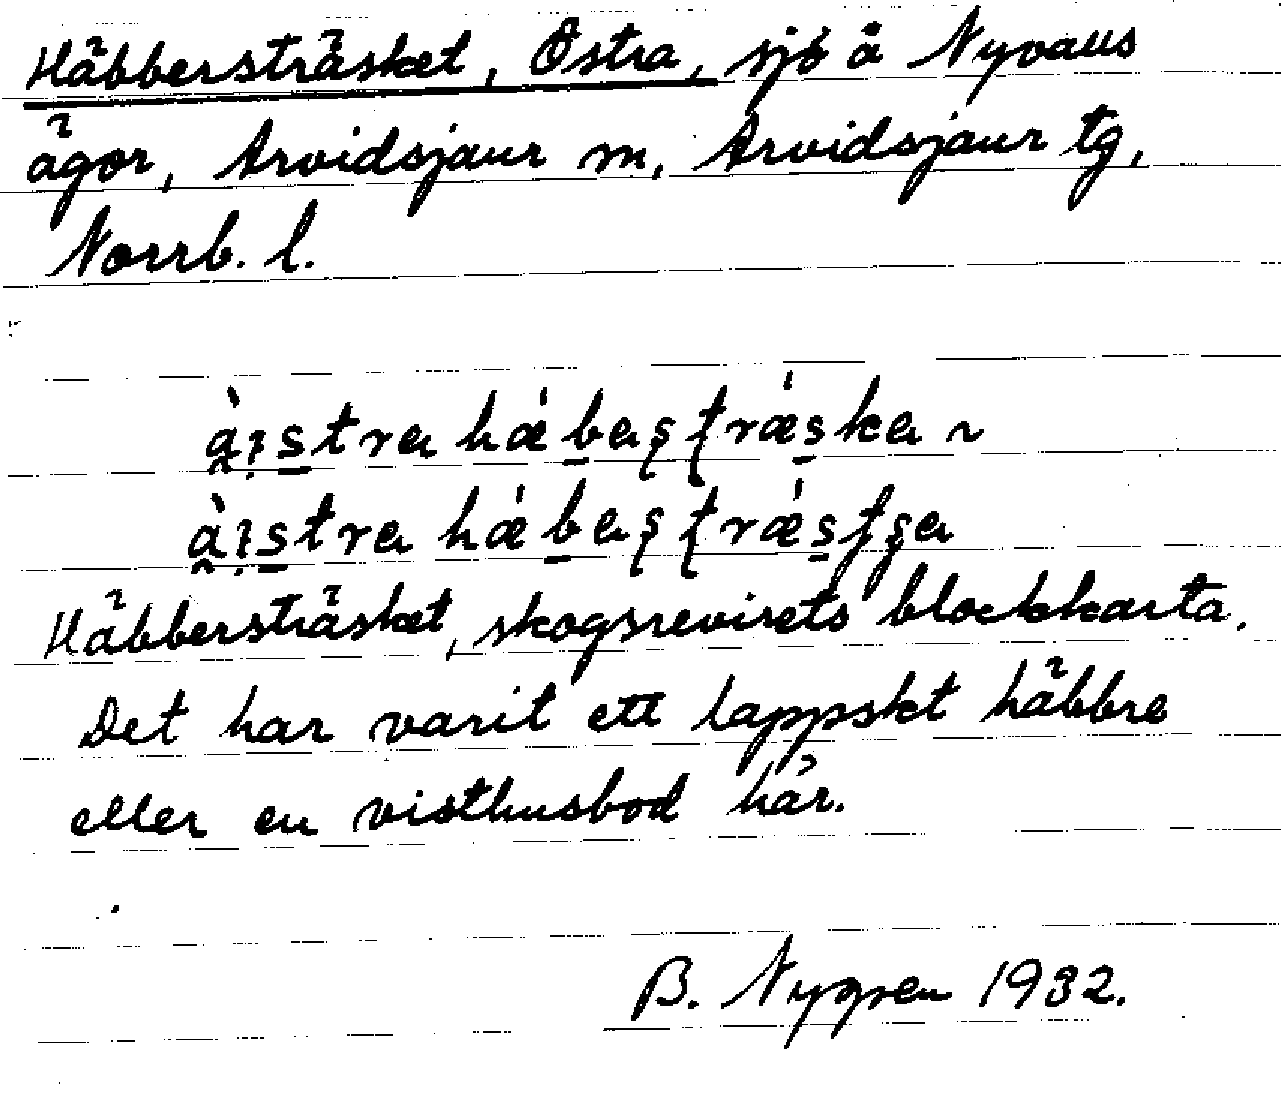 Häbbersträsket, Östra, sjö å Nyvalls
ägor, Arvidsjaur sn, Arvidsjaur tg,
Norrb. l.
häbbersträsket
Häbbersträsket, skogsrevirets blockkarta.
Det har varit ett lappskt häbbre
eller en visthusbod här.
B. Nygren 1932.